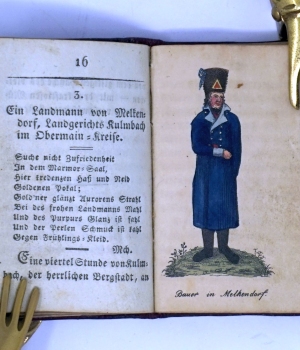 16
3.
Ein Landmann von Melken-
dorf, Landgerichts Kulmbach
im Obermain-Kreise.
Suche nicht Zufriedenheit
In dem Marmor-Saal,
Hier kredenzen Haß und Neid
Goldenen Pokal;
Gold'ner glänzt Aurorens Strahl
Bei des frohen Landmanns Mahl
Und des Purpurs Glanz ist fahl
Und der Perlen Schmuck ist kahl
Gegen Frühlings-Kleid.
Mch.
Eine viertel Stunde von Kulm-
bach, der herrlichen Bergstadt, an
Bauer in Melkendorf.